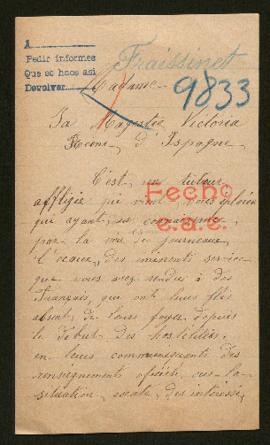 A
Pedir informes
Que se hace asi
Devolver
Fraissinet
9833
Madame
Sa Majestée Victoria
Reine d'Espagne
C'est un tuteur
affligée qui vient vous
qui ayant, su
par la voie des journeaux
des iminents service
que vous avez rendus à des
Français, qui ont leurs fils
absent, de leurs foyer depuis
le début des hostilités,
en leurs communiquants des
renseignements officiels sur la
situation, exacte, des intéressés,
Fecho
e.a.c.